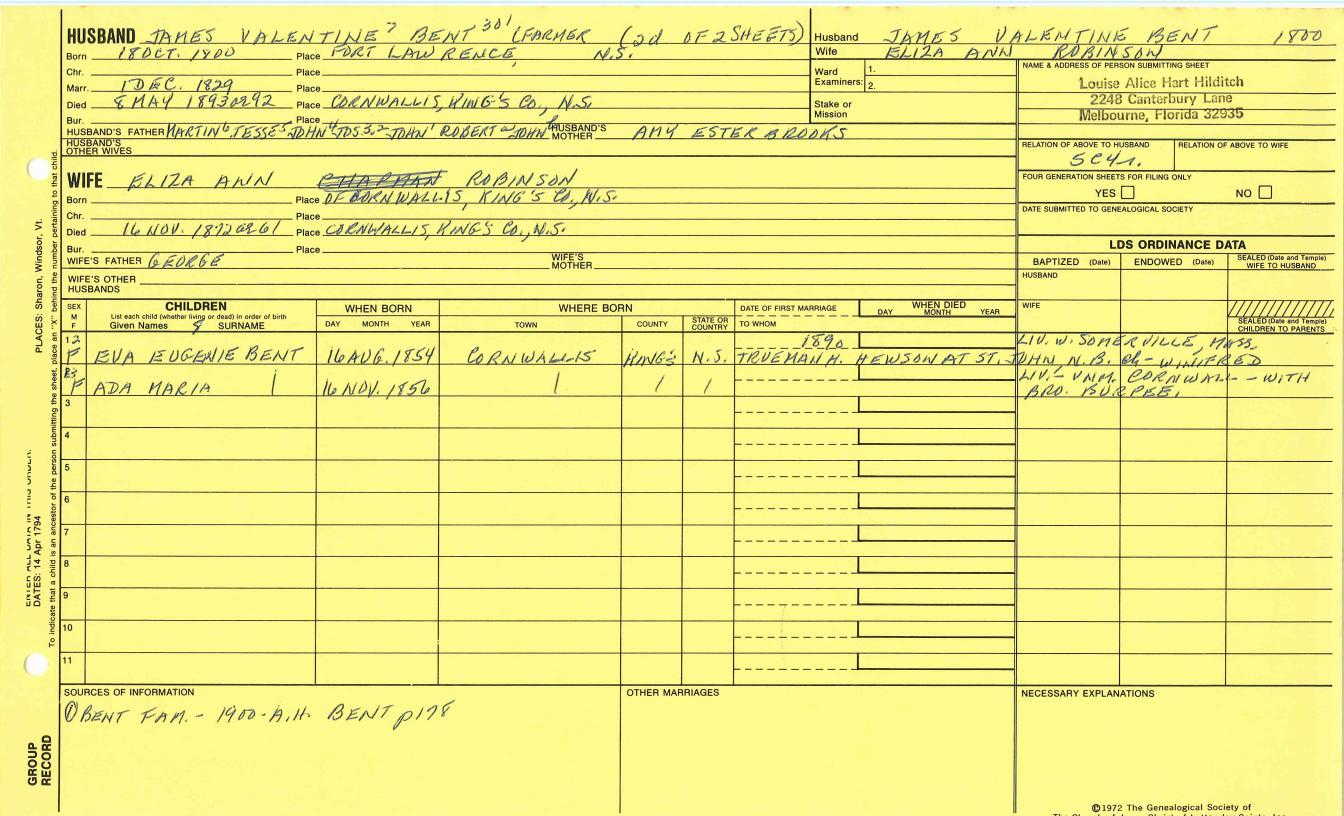 HUSBAND JAMES VALENTINE 7 BENT 301 (FARMER (2d OF 2 SHEETS)
Born 18 OCT. 1800 Place FORT LAWRENCE, N.S.
Chr. Place
Marr. 1 DEC. 1829 Place
Died 8 MAY 1893 OR 92 Place CORNWALLIS, KING'S CO., N.S.
Bur. Place
HUSBAND'S FATHER MARTIN 6, JESSE 5, JOHN 4, JOS 3, 2 JOHN 1 ROBERT a JOHN b HUSBAND'S MOTHER AMY ESTERBROOKS
HUSBAND'S OTHER WIVES
WIFE ELIZA ANN ROBINSON
Born Place OF CORNWALLIS, KING'S CO., N.S.
Chr. Place
Died 16 NOV. 1872 OR 61 Place CORNWALLIS, KING'S CO., N.S.
Bur. Place
WIFE'S FATHER GEORGE WIFE'S MOTHER
WIFE'S OTHER HUSBANDS
Husband JAMES VALENTINE BENT 1800
Wife ELIZA ANN ROBINSON
Ward Examiners: 1.
2.
Stake or Mission
NAME & ADDRESS OF PERSON SUBMITTING SHEET
Louise Alice Hart Hilditch
2248 Canterbury Lane
Melbourne, Florida 32935
RELATION OF ABOVE TO HUSBAND RELATION OF ABOVE TO WIFE
5C4r.
FOUR GENERATION SHEETS FOR FILING ONLY
YES NO
DATE SUBMITTED TO GENEALOGICAL SOCIETY
LDS ORDINANCE DATA
BAPTIZED (Date) ENDOWED (Date) SEALED (Date and Temple) WIFE TO HUSBAND
HUSBAND
WIFE
SEALED (Date and Temple) CHILDREN TO PARENTS
SEX M F CHILDREN WHEN BORN WHERE BORN DATE OF FIRST MARRIAGE WHEN DIED
List each child (whether living or dead) in order of birth
Given Names SURNAME DAY MONTH YEAR TOWN COUNTY STATE OR COUNTRY TO WHOM DAY MONTH YEAR
12 1890 LIV. W. SOMERVILLE, MASS.
F EVA EUGENIE BENT 16 AUG. 1854 CORNWALLIS KING'S N.S. TRUEMAN H. HEWSON AT ST. JOHN N.B. Ch- WINIFRED
13 LIV.- UNM. CORNWALL - WITH
F ADA MARIA 16 NOV. 1856 BRO. BURPEE.
3
4
5
6
7
8
9
10
11
SOURCES OF INFORMATION OTHER MARRIAGES NECESSARY EXPLANATIONS
① BENT FAM. - 1900 - A.H. BENT p178
PLACES: Sharon, Windsor, Vt.
DATES: 14 Apr 1794
To indicate that a child is an ancestor of the person submitting the sheet, place an "X" behind the number pertaining to that child.
GROUP RECORD
©1972 The Genealogical Society of